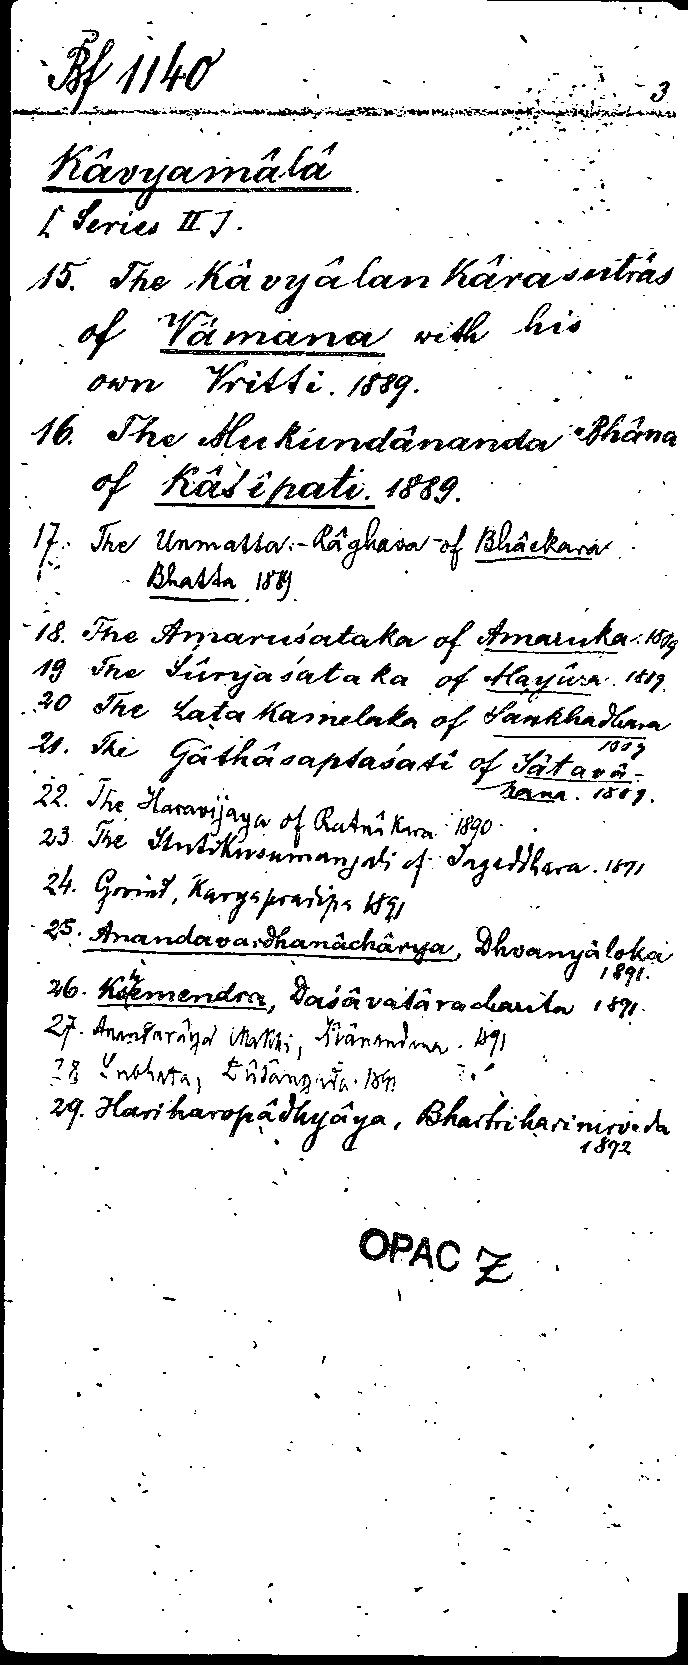 Bf 1140
3
Kâvyamâlâ
[Series II].
15. The Kâvyâlankârasutrâs
of Vâmana with his
own Vritti. 1889.
16. The Mukundânanda Bhâna
of Kâśîpati. 1889.
17. The Unmatta-Râghava of Bhâskara
Bhatta 1889
18. The Amaruśataka of Amaruka. 1889
19 The Sûryaśataka of Mayûra. 1889.
20 The Latakamelaka of Sankhadhara
1889
21. The Gâthâsaptaśatî of Sâtavâ-
hana. 1889.
22. The Haravijaya of Ratnâkara 1890.
23 The Stutikusumanjali of Jagaddhara. 1891
24. Govind, Kavyapradîpa 1891
25. Anandavardhanâchârya, Dhvanyâloka
1891.
26. Kshemendra, Daśâvatâracharita 1891.
27. Anandarâya Makhi, Jîvânandana. 1891
28 Subhata, Dûtângada. 1891
29. Hariharopâdhyâya, Bhartriharinirveda
1892
OPAC Z